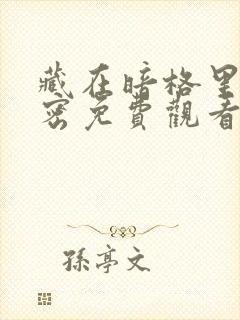 藏在暗格里
密免费觀看
孫亭文